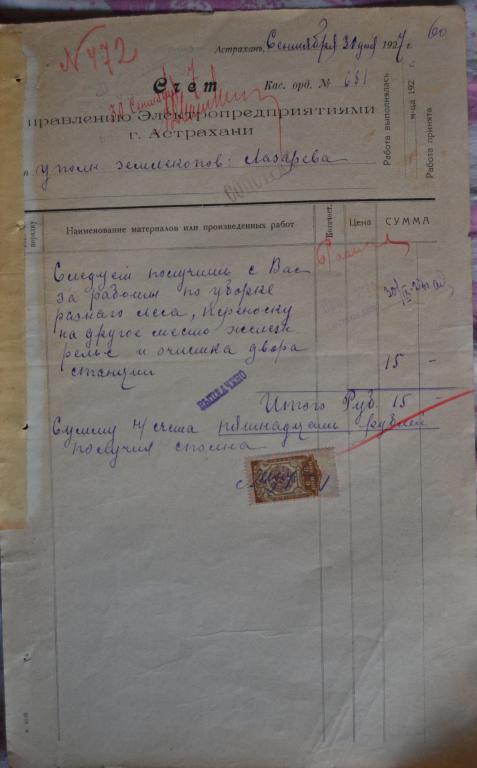 60
№ 472
Астрахань, Сентября 30 дня 1927 г.
Счет
Кас. орд. № 681
30 Сентября
правлению Электропредприятиями
г. Астрахани
уполн. землекопов: Лазарева
Работа выполнялась
м-ца 192 г.
Работа принята
порядку
Наименование материалов или произведенных работ
Количест.
Цена
СУММА
Следует получить с Вас
за работы по уборке
разного леса, переноску
на другое место железн
рельс и очистка двора
станции 15 –
ВЫПЛАЧЕНО
Итого Руб. 15 –
Сумму н/счета пятнадцать рублей
получил сполна